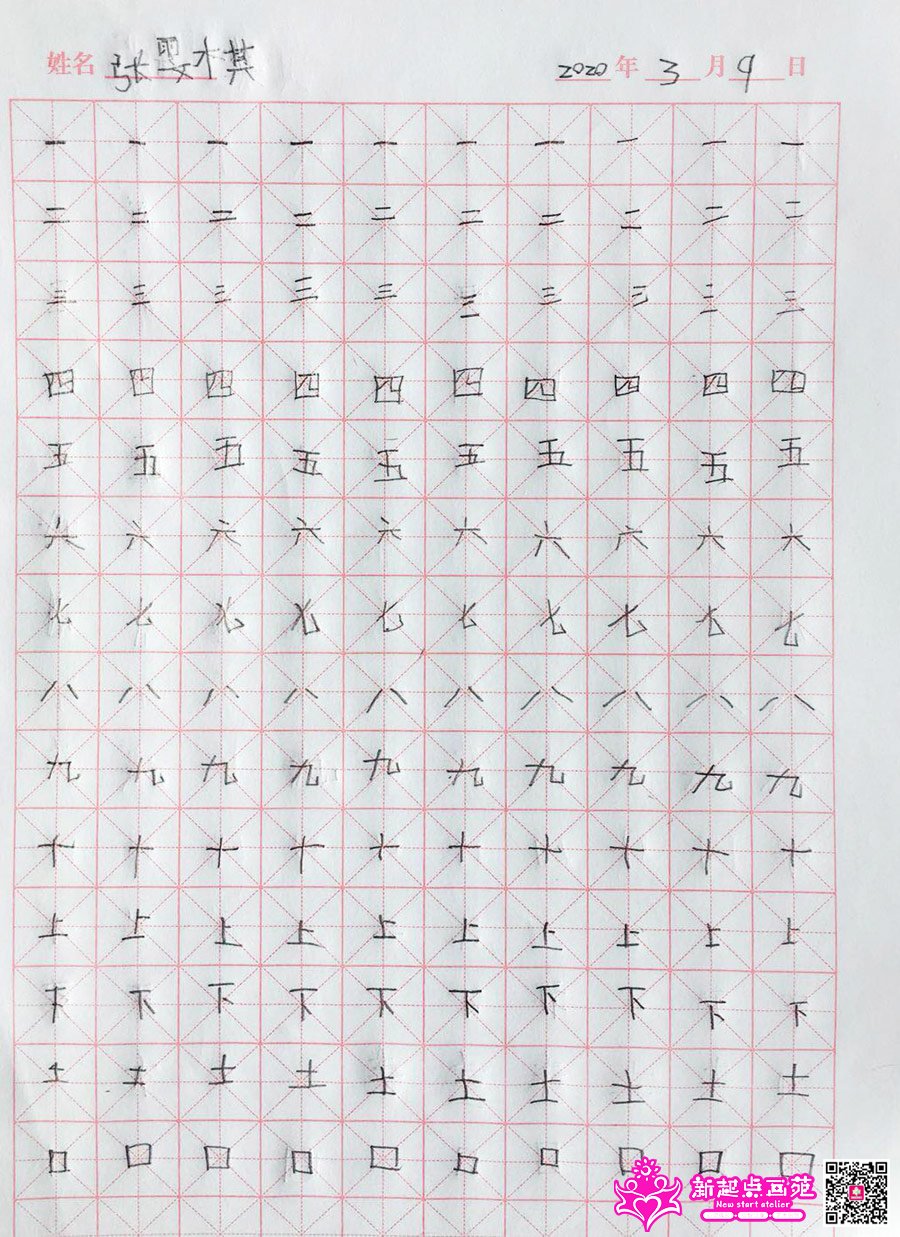 姓名 张婴木其 2020年3月9日
一 一 一 一 一 一 一 一 一 一
二 二 二 二 二 二 二 二 二 二
三 三 三 三 三 三 三 三 三 三
四 四 四 四 四 四 四 四 四 四
五 五 五 五 五 五 五 五 五 五
六 六 六 六 六 六 六 六 六 六
七 七 七 七 七 七 七 七 七 七
八 八 八 八 八 八 八 八 八 八
九 九 九 九 九 九 九 九 九 九
十 十 十 十 十 十 十 十 十 十
上 上 上 上 上 上 上 上 上 上
下 下 下 下 下 下 下 下 下 下
土 土 土 土 土 土 土 土 土 土
口 口 口 口 口 口 口 口 口 口
新起点画苑
New start atelier